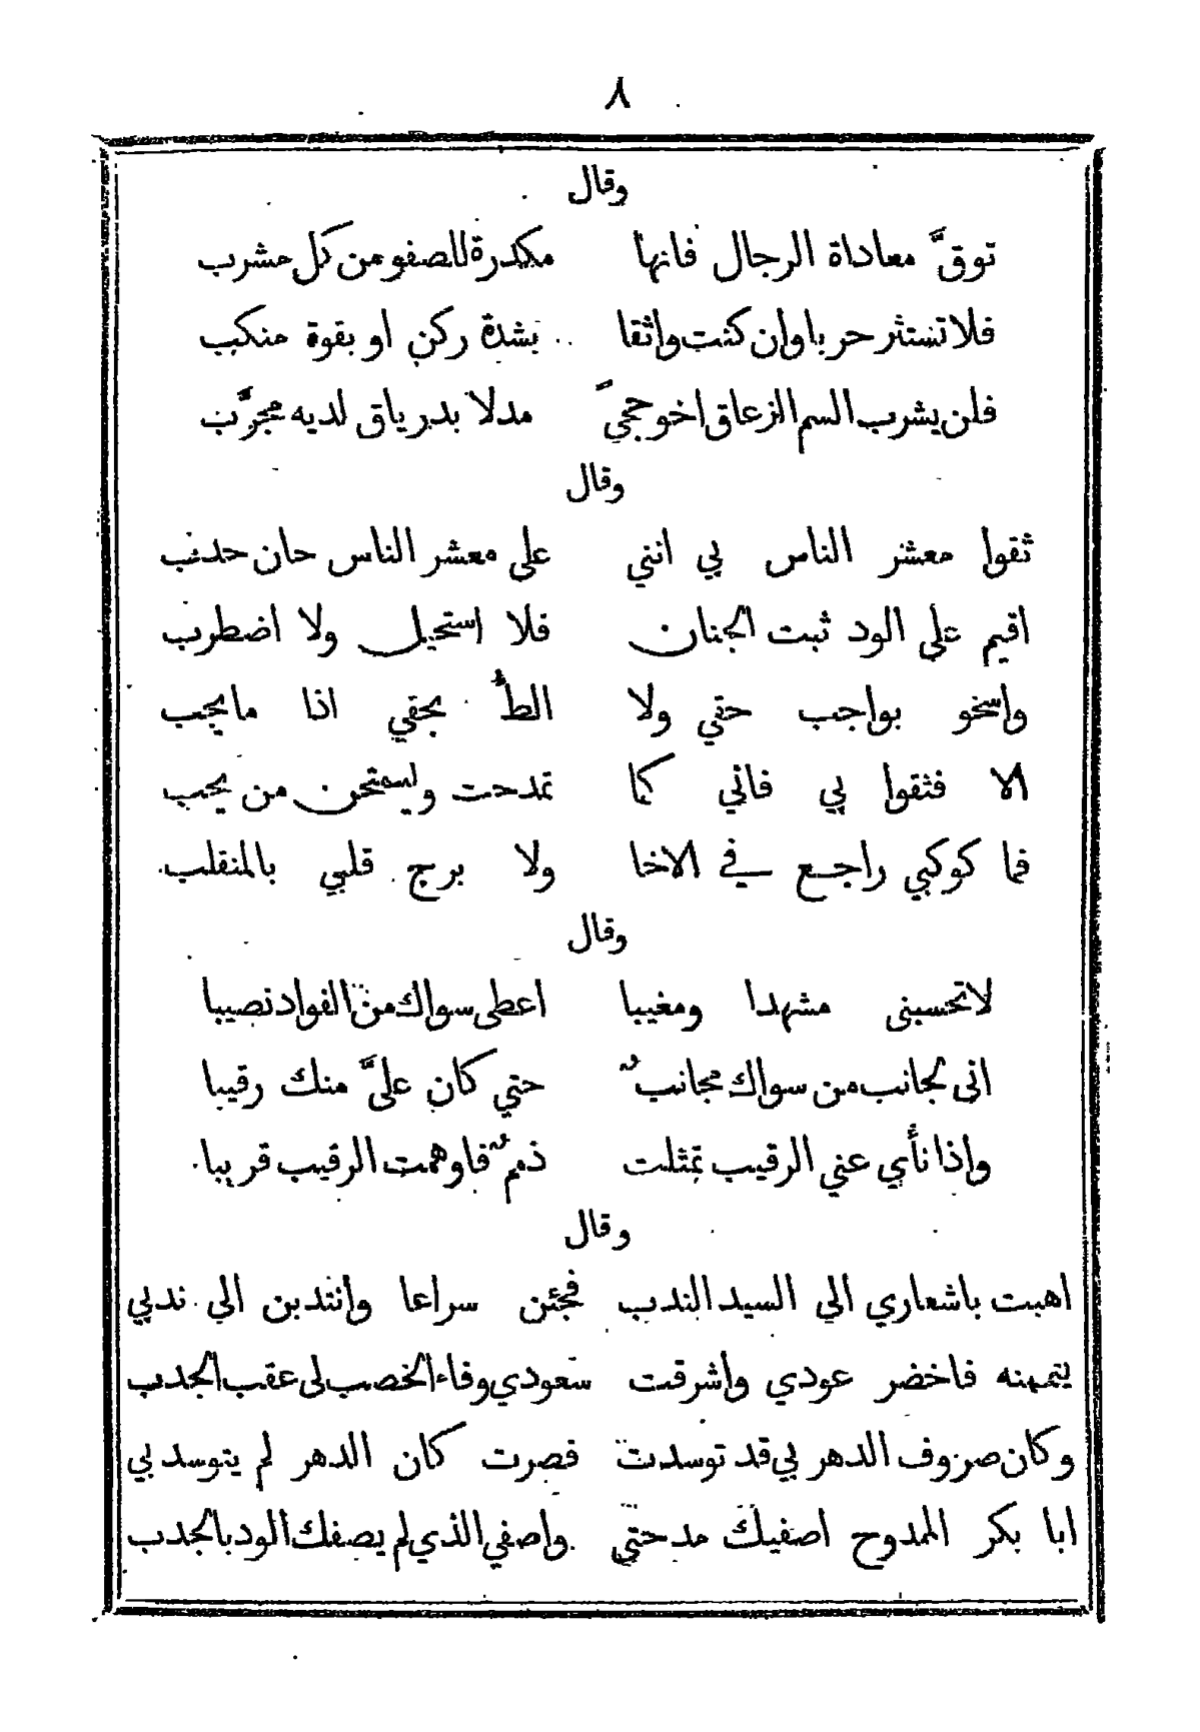 ٨
وقال
توقَّ معاداة الرجال فانها مكدرة للصفو من كل مشرب
فلا تستثر حربا وان كنت واثقا بشدة ركن او بقوة منكب
فلن يشرب السم الزعاق اخو حجيً مدلا بدرياق لديه مجرَّب
وقال
ثقوا معشر الناس بي انني على معشر الناس حان حدب
اقيم على الود ثبت الجنان فلا استحيل ولا اضطرب
واسخو بواجب حقي ولا الطُّ بحقي اذا ما يجب
الا فثقوا بي فاني كما تمدحت وليمتحن من يحب
فما كوكبي راجع في الاخا ولا برج قلبي بالمنقلب
وقال
لا تحسبنى مشهدا ومغيبا اعطى سواك من الفواد نصيبا
انى لجانب من سواك مجانبٌ حتي كان عليَّ منك رقيبا
واذا نأي عني الرقيب تمثلت ذممٌ فاوهمت الرقيب قريبا
وقال
اهبت باشعاري الي السيد الندب فجئن سراعا وانتدبن الي ندبي
بتمهنه فاخضر عودي واشرقت سعودي وفاء الخصب لى عقب الجدب
وكان صروف الدهر بي قد توسدت فصرت كان الدهر لم يتوسد بي
ابا بكر الممدوح اصفيك مدحتي واصفي الذي لم يصفك الود بالجدب